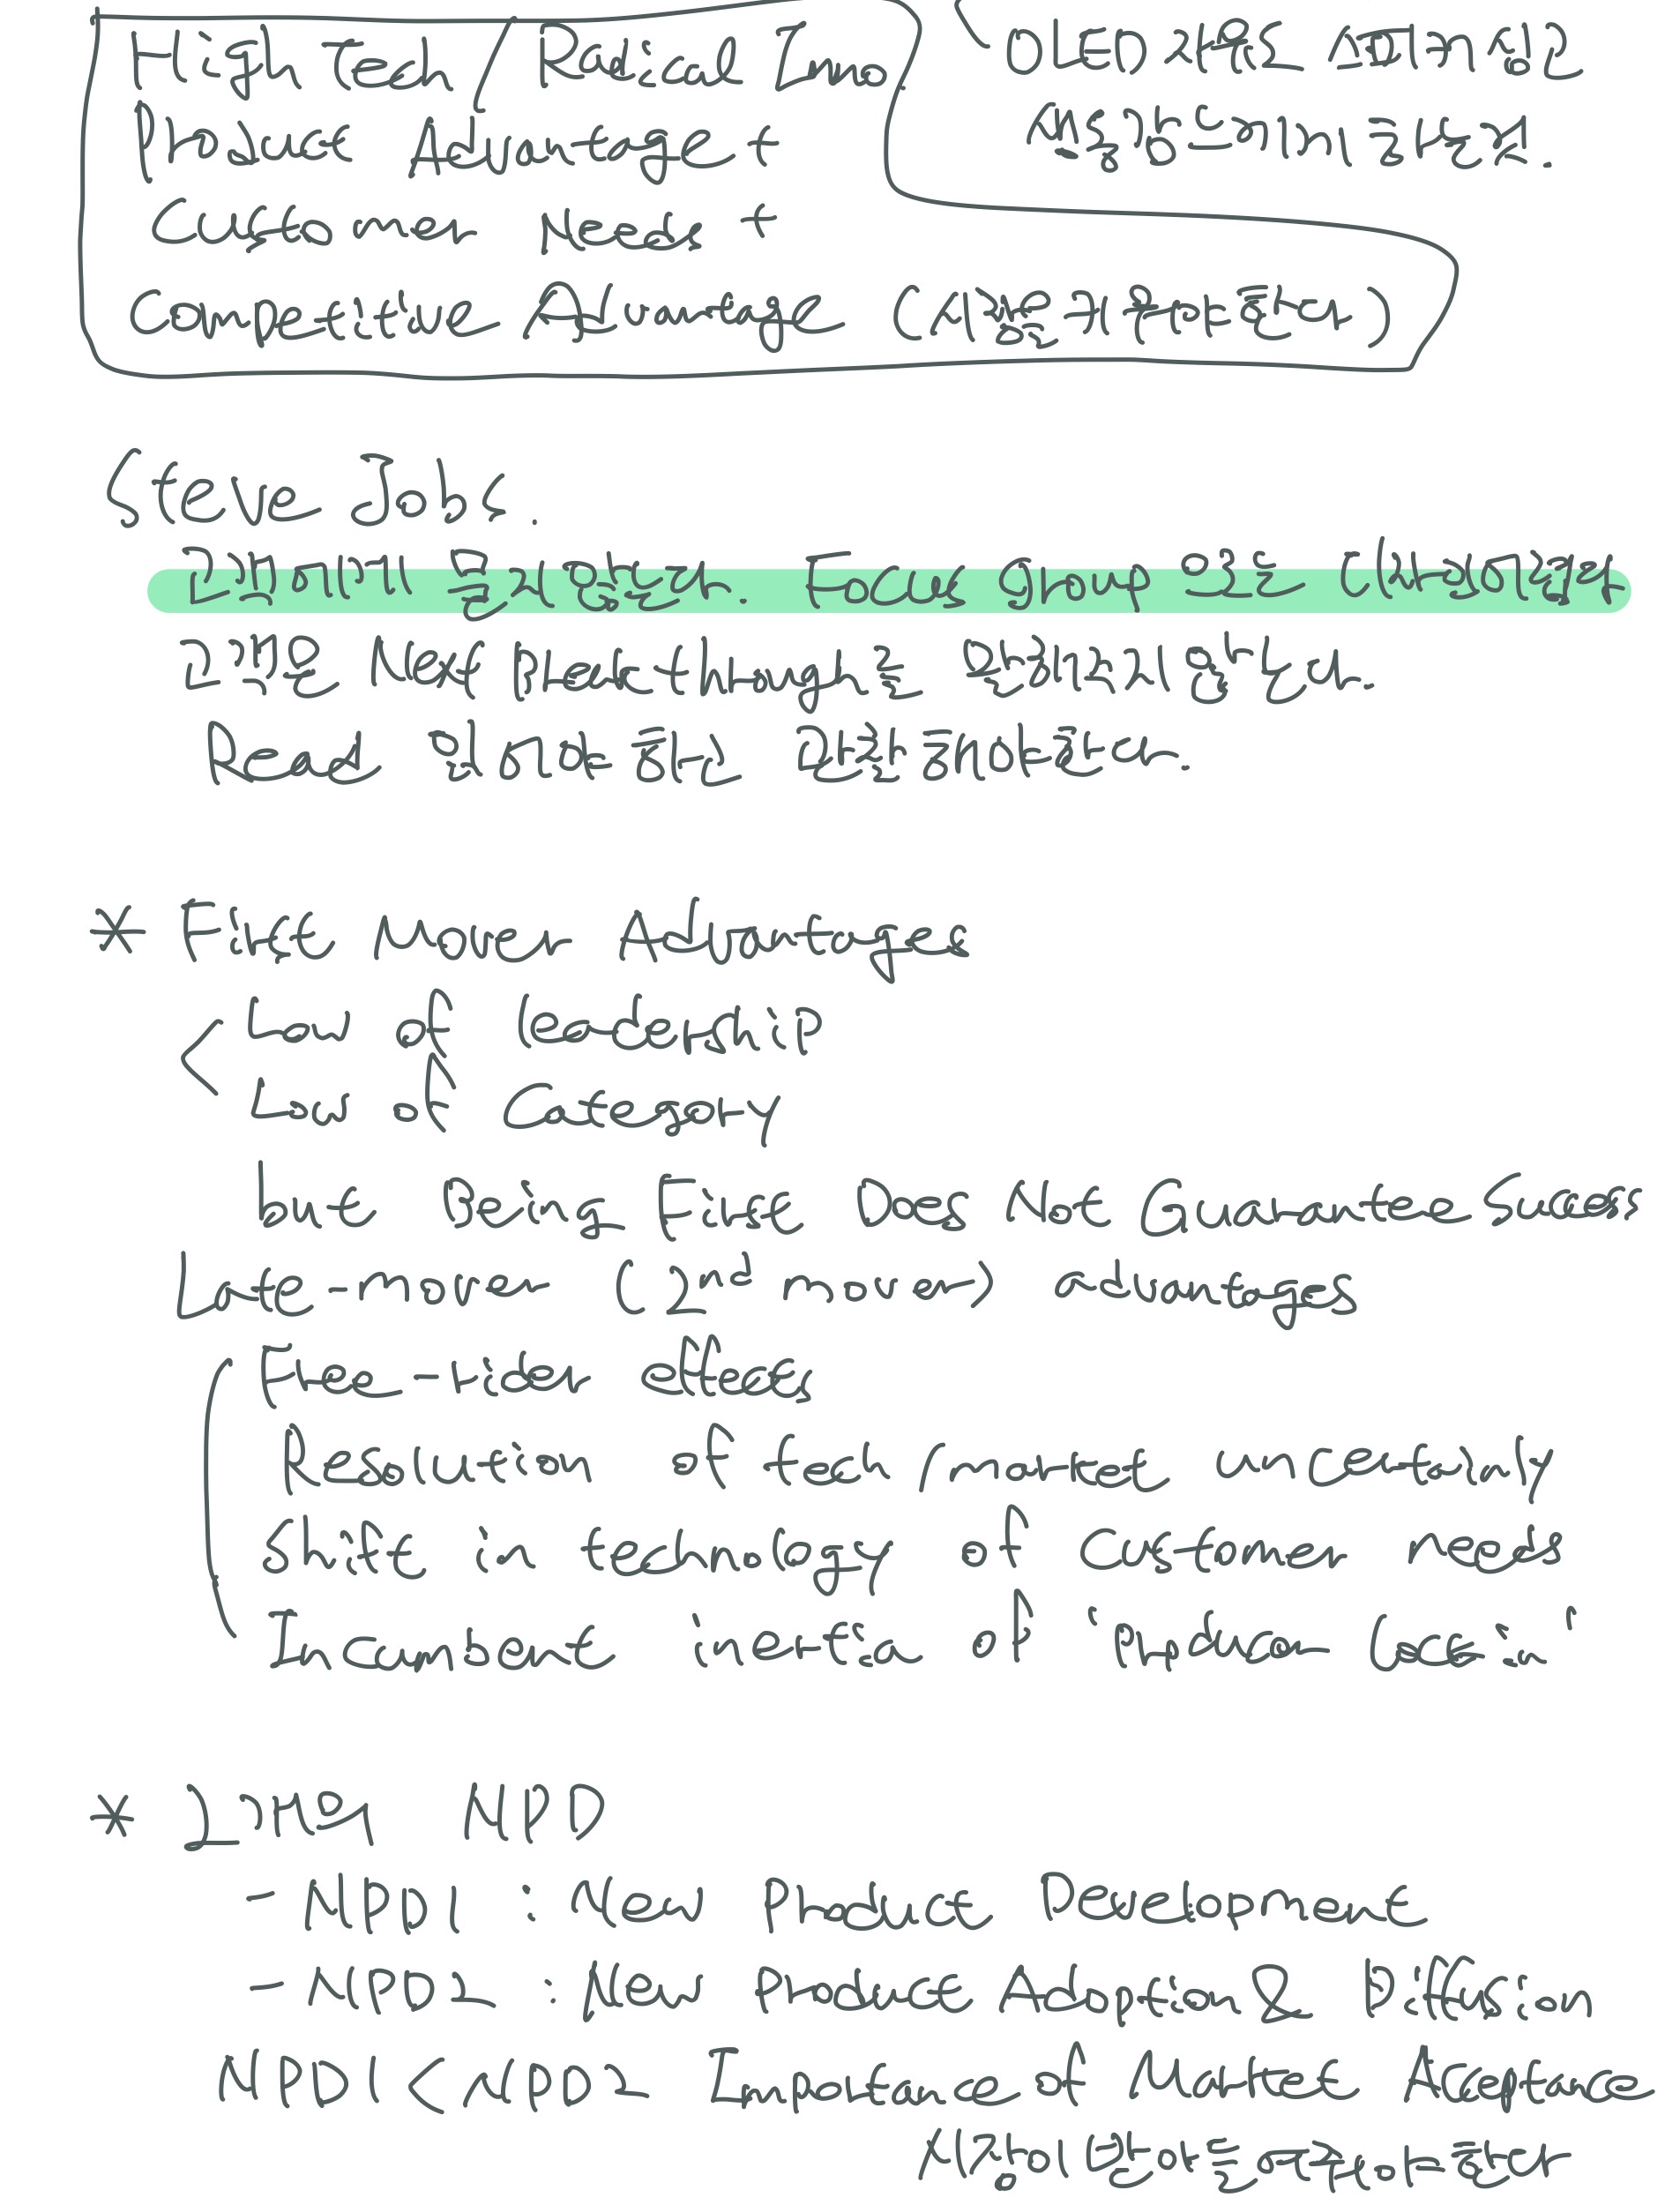 High tech / Radical Inno
Product Advantage +
Customer Needs +
Competitive Advantage (시험문제 유사하한다)
OLED 자체도 시판가 싱고
생활 안에서 과시된.
Steve Jobs.
고객에게 묻지 않는다. Focus Group 없는
고객은 Next Breakthrough를 말해주지 않는다.
Read 읽어야 하는 관찰해야한다.
* First Mover Advantages
Law of leadership
Law of Category
but Being First Does Not Guarantee Success
Late-mover (2nd mover) advantages
Free-rider effects
Resolution of tech/market uncertainty
Shift in technology of Customer needs
Incumbent inertia of 'Producer Lockin'
* 2개의 NPD
- NPD1 : New Product Development
- NPD2 : New Product Adoption & Diffusion
NPD1 < NPD2 Importance of Market Acceptance
시장이 받아들여줘야 한다